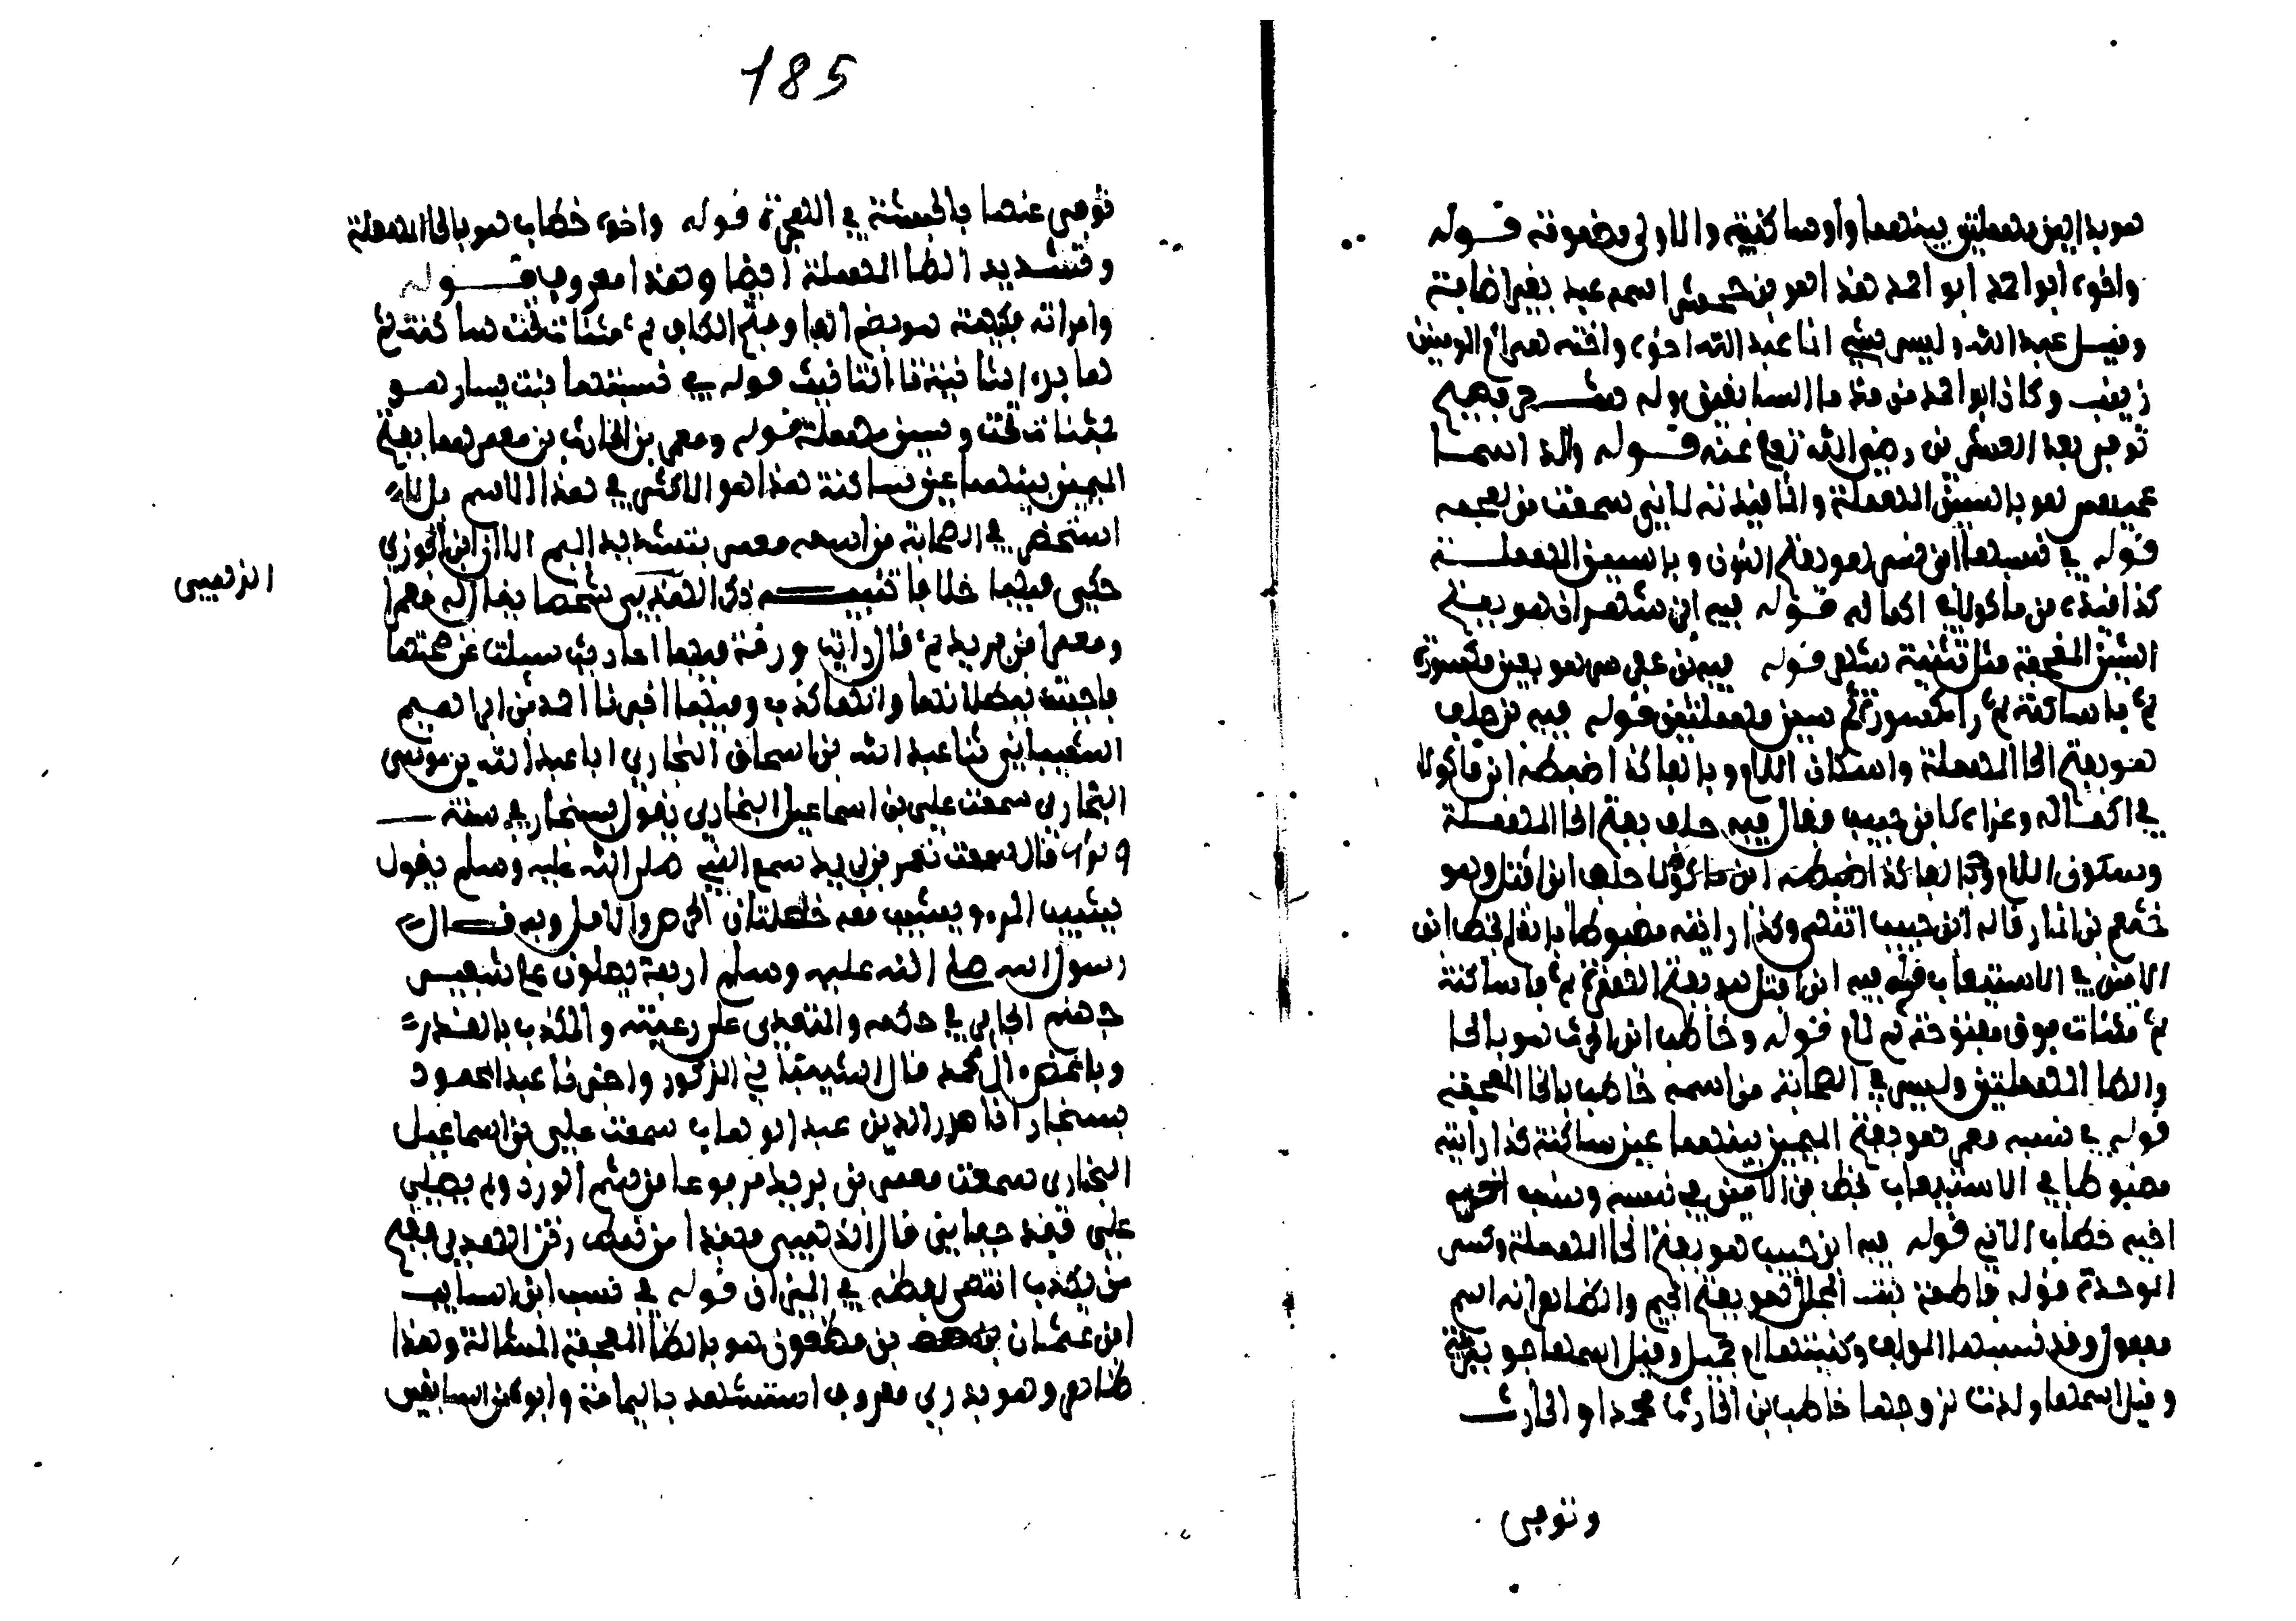 هو بدالين مهملتين بينهما واو ساكنة والاولى مضمومة قوله
واخوه ابو احمد ابو احمد هذا هو بن جحش اسمه عبد بغير اضافة
وقيل عبد الله وليس بشي انما عبد الله اخوه واخته هي ام المومنين
زينب وكان ابو احمد من قدما السابقين وله هجرة
توفى بعد العشرين رضي الله تعالى عنه قوله والد اسما
عميس هو بالسين المهملة وانما قيدته لانني سمعت من يعجمه
قوله في نسبها ابن نسر هو بفتح النون وبالسين المهملة
كذا قيده بن ماكولا في اكماله قوله فيه ابن شهران هو بفتح
الشين المعجمة مثل تثنية شهر قوله فيه بن عفرس هو بعين مكسورة
ثم فا ساكنة ثم را مكسورة ثم سين مهملتين قوله فيه بن حلف
هو بفتح الحا المهملة واسكان اللام وبالفا كذا ضبطه ابن ماكولا
في اكماله وعزاه لابن حبيب وقال فيه حلف بفتح الحا المهملة
وسكون اللام وبالفا كذا ضبطه ابن ماكولا حلف ابن افتل وهو
خثعم بن انمار قاله ابن حبيب انتهى وكذا رايته مضبوطا بالقلم بخط ابن
الامين في الاستيعاب قوله فيه ابن افتل هو بفتح الهمزة ثم فا ساكنة
ثم مثناة فوق مفتوحة ثم لام قوله وحاطب ابن الحرث هو بالحا
والطا المهملتين وليس في الصحابة من اسمه خاطب بالخا المعجمة
قوله في نسبه معمر هو بفتح الميمين بينهما عين ساكنة كذا رايته
مضبوطا في الاستيعاب بخط بن الامين في نسبه ونسب اخيه
اخيه خطاب الاتي قوله فيه ابن حبيب هو بفتح الحا المهملة وكسر
الموحدة قوله فاطمة بنت المجلل هو بفتح الجيم والظاهر انه اسم
مفعول وقد نسبها المولف وكنيتها ام جميل وقيل اسمها جويرية
وقيل اسمها ولدت لزوجها حاطب بن الحارث محمدا والحارث
وتوفى
185
توفى عنها بالحبشة في الهجرة قوله واخوه خطاب هو بالحا المهملة
وتشديد الطا المهملة ايضا وهذا معروف قوله
وامراته فكيهة هو بضم الفا وفتح الكاف ثم مثناة تحت ساكنة ثم
ها ثم تا التانيث قوله في نسبتها بنت يسار هو
بمثناة تحت وسين مهملة قوله ومعمر بن الحارث بن معمر هما بفتح
الميمين بينهما عين ساكنة هذا هو الاكثر في هذا الاسم بل لا
استحضر في الصحابة من اسمه معمر بتشديد الميم الا ان ابن الجوزي
حكى فيهما خلافا تنبيه ذكر الذهبي شخصا يقال له معمر
ومعمر بن بريد ثم قال رايت ورقة فيها احاديث سيلت عن صحتها
فاجبت ببطلانها وانها كذب وفيها اخبرنا احمد بن ابراهيم
الشيباني ثنا عبد الله بن اسحاق السنجاري انا عبد الله بن موسى
السنجاري سمعت علي بن اسماعيل السنجاري يقول بسنجار في سنة
قال سمعت معمر بن بريد سمع النبي صلى الله عليه وسلم يقول
يشيب المرء ويشب معه خصلتان الحرص والامل وبه قال
رسول الله صلى الله عليه وسلم اربعة يصلون على شفير
جهنم الجاير في حكمه والمتعدي على رعيته والمكذب بالقدر
وباغض ال محمد قال الشيباني المذكور واخبرنا عبد المحمود
بسنجار انا صدر الدين عبد الوهاب سمعت علي بن اسماعيل
السنجاري سمعت معمر بن بريد مرفوعا من شم الورد ولم يصلي
علي فقد جفاني قال الذهبي فهذا من نمط رتن الهندي فقبح
من يكذب انتهى لفظه في الميزان قوله في نسب ابن السايب
ابن عثمان بن مظعون هو بالظا المعجمة المشالة وهذا
ظاهر وهو بدري معروف استشهد باليمامة وابوه من السابقين
الذهبي